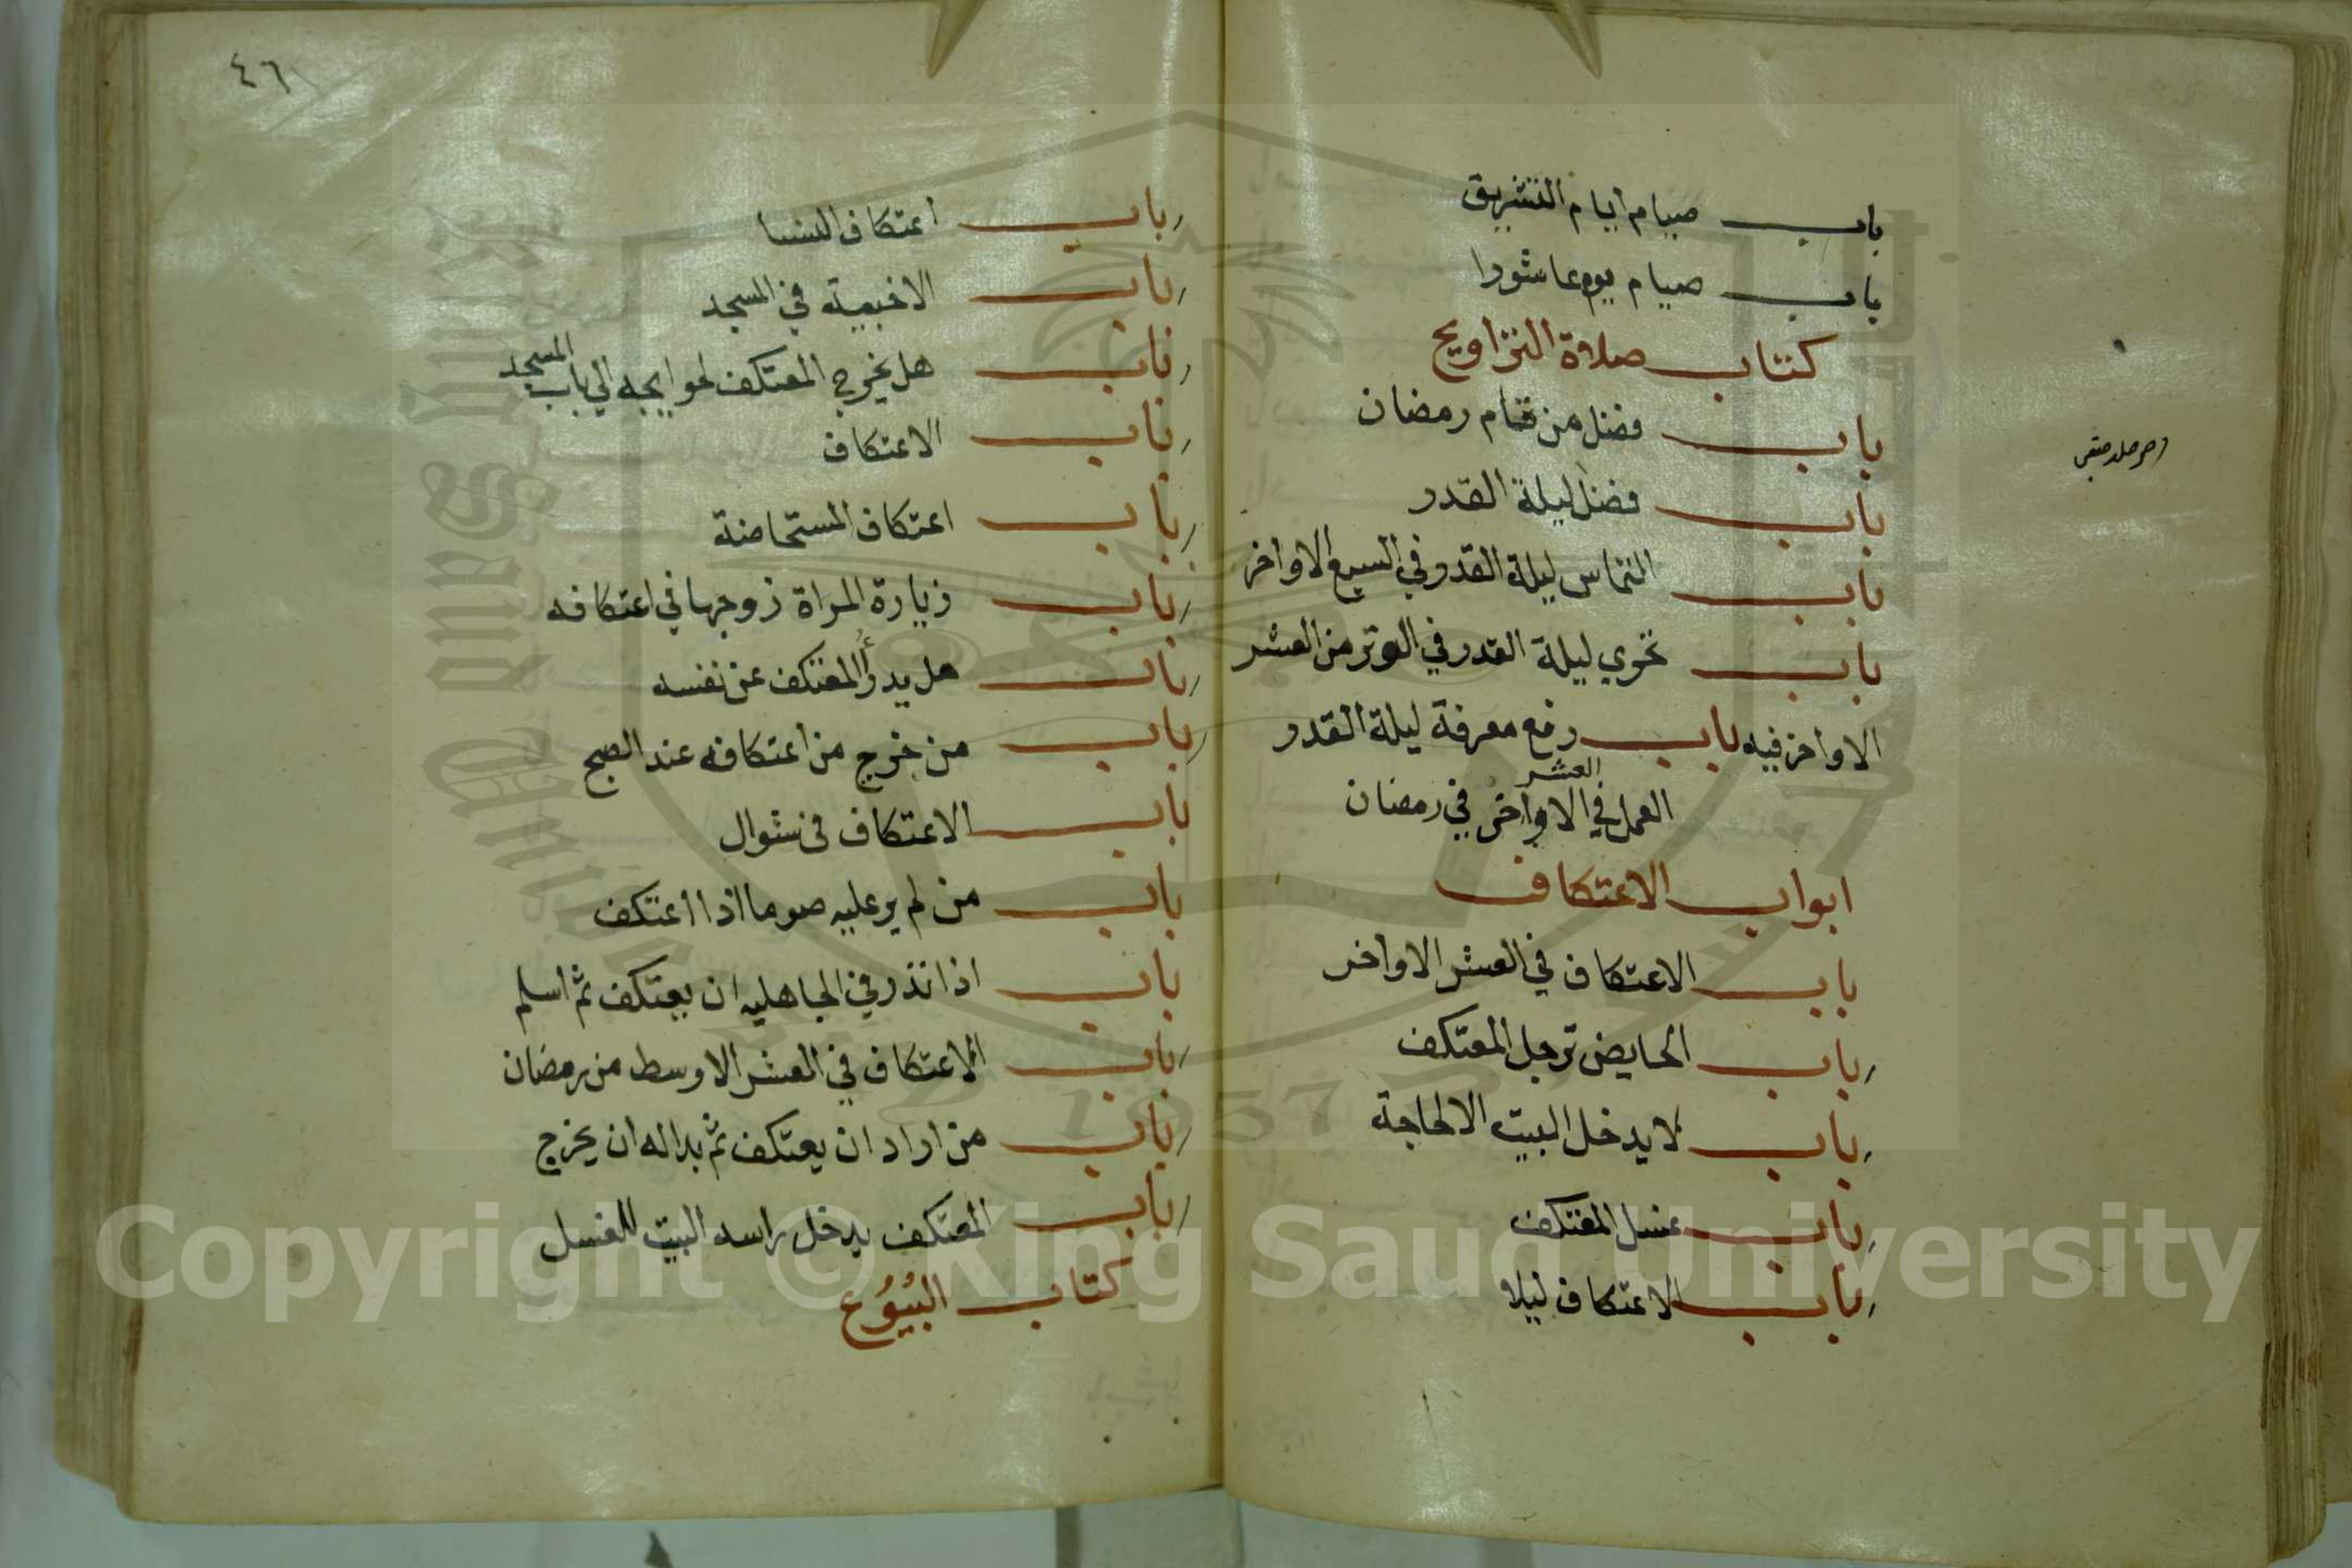 باب صيام ايام التشريق
باب صيام يوم عاشورا
كتاب صلاة التراويح
باب فضل من قام رمضان
باب فضل ليلة القدر
باب التماس ليلة القدر في السبع الاواخر
باب تحري ليلة القدر في الوتر من العشر
الاواخر فيه باب رفع معرفة ليلة القدر
العشر
العمل في الاواخر في رمضان
ابواب الاعتكاف
باب الاعتكاف في العشر الاواخر
باب الحايض ترجل المعتكف
باب لا يدخل البيت الا لحاجة
باب غسل المعتكف
باب الاعتكاف ليلا
٤٦
باب اعتكاف النسا
باب الاخبية في المسجد
باب هل يخرج المعتكف لحوايجه الي باب المسجد
باب الاعتكاف
باب اعتكاف المستحاضة
باب زيارة المراة زوجها في اعتكافه
باب هل يدرؤ المعتكف عن نفسه
باب من خرج من اعتكافه عند الصبح
باب الاعتكاف في شوال
باب من لم ير عليه صوما اذا اعتكف
باب اذا نذر في الجاهليه ان يعتكف ثم اسلم
باب الاعتكاف في العشر الاوسط من رمضان
باب من اراد ان يعتكف ثم بدا له ان يخرج
باب المعتكف يدخل راسه البيت للغسل
كتاب البُيُوُع
Copyright © King Saud University
1957